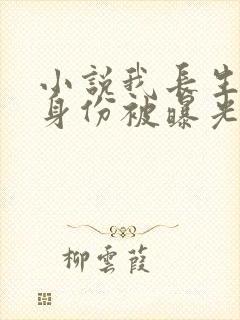 小說我長生
身份被曝光
柳雲葭